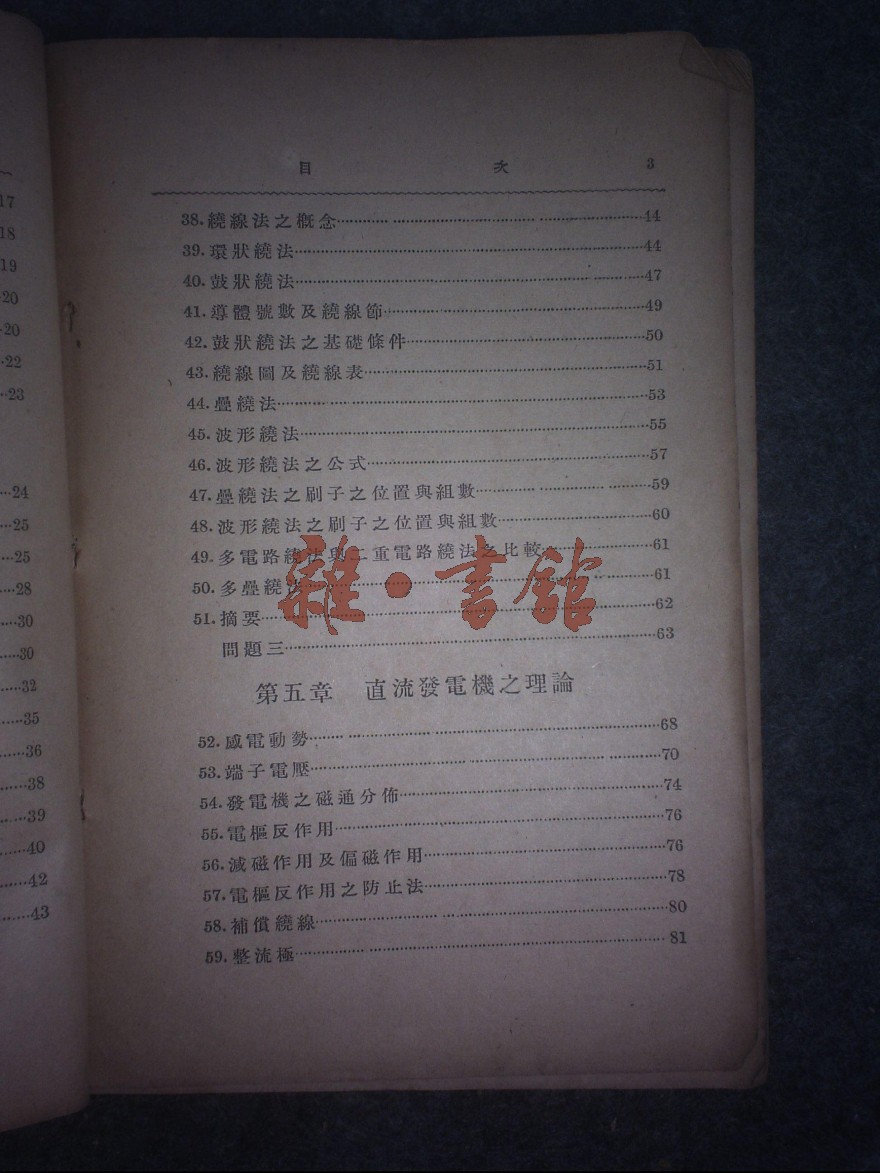 17
18
19
20
20
22
23
24
25
25
28
30
30
32
35
36
38
39
40
42
43
目 次 3
38.繞線法之概念 44
39.環狀繞法 44
40.鼓狀繞法 47
41.導體號數及繞線節 49
42.鼓狀繞法之基礎條件 50
43.繞線圖及繞線表 51
44.疊繞法 53
45.波形繞法 55
46.波形繞法之公式 57
47.疊繞法之刷子之位置與組數 59
48.波形繞法之刷子之位置與組數 60
49.多電路繞法與二重電路繞法之比較 61
50.多疊繞法 61
51.摘要 62
問題三 63
雜·書館
第五章 直流發電機之理論
52.感電動勢 68
53.端子電壓 70
54.發電機之磁通分佈 74
55.電樞反作用 76
56.減磁作用及偏磁作用 76
57.電樞反作用之防止法 78
58.補償繞線 80
59.整流極 81